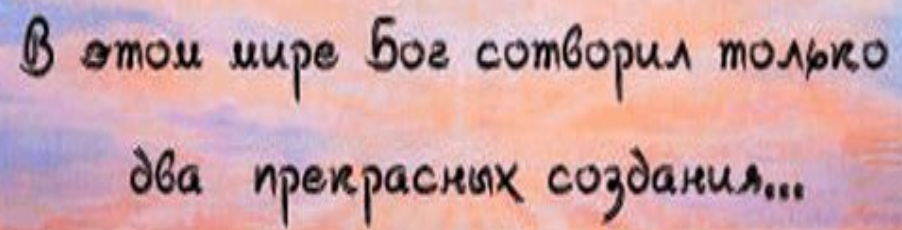 В этом мире Бог сотворил только
два прекрасных создания...